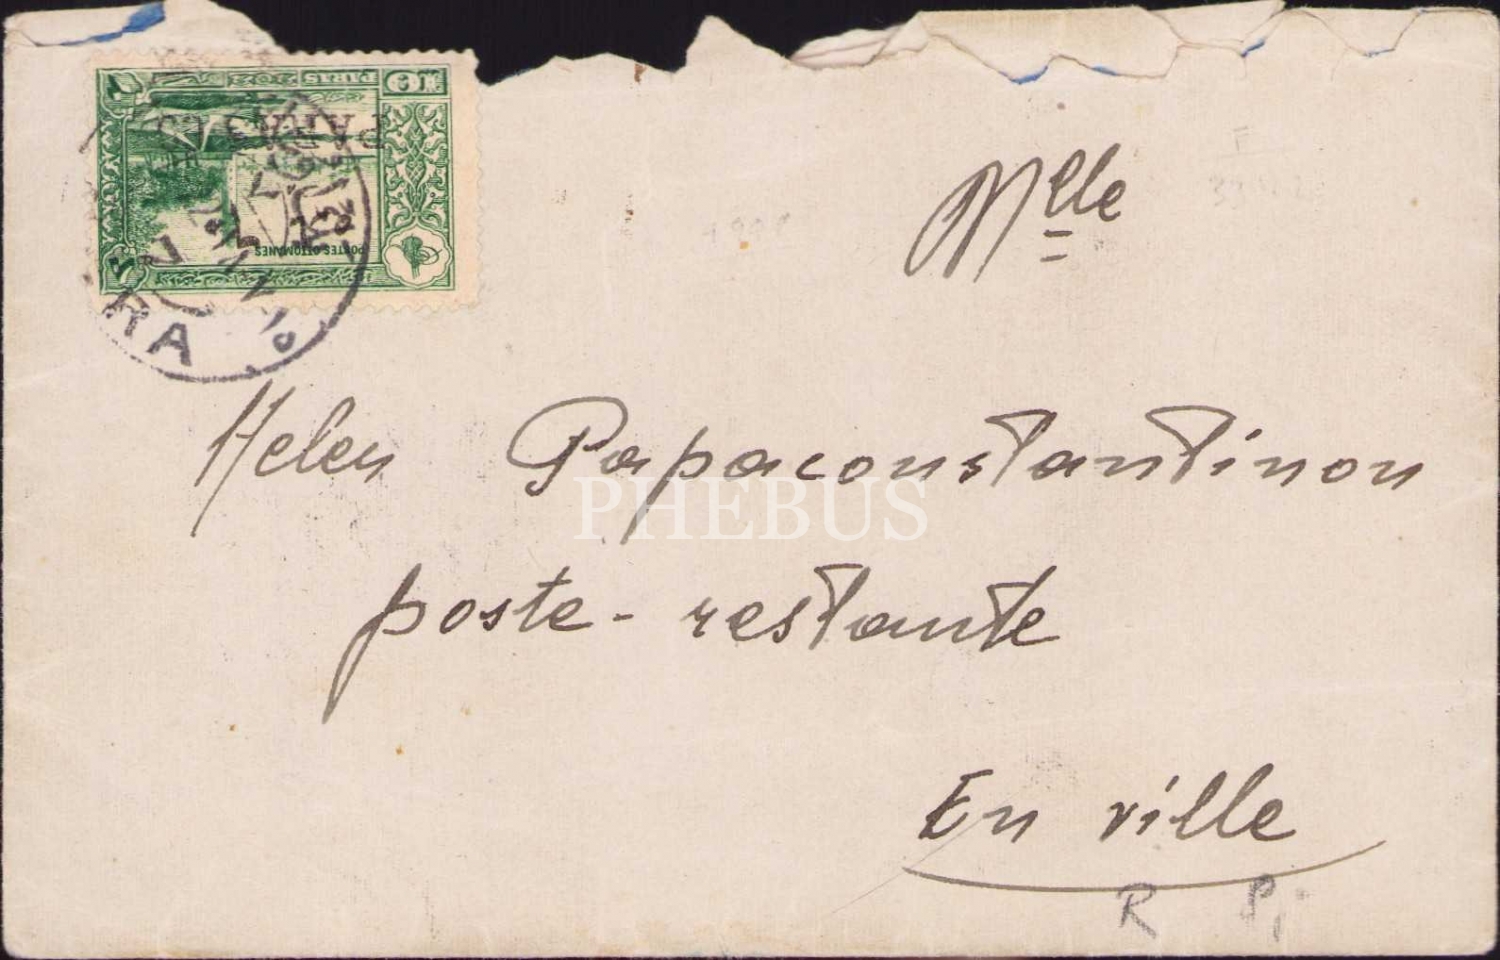 10 PARAS 20
POSTES OTTOMANES
RA
Mlle
Helen Papaconstantinou
PHEBUS
poste-restante
En ville
R